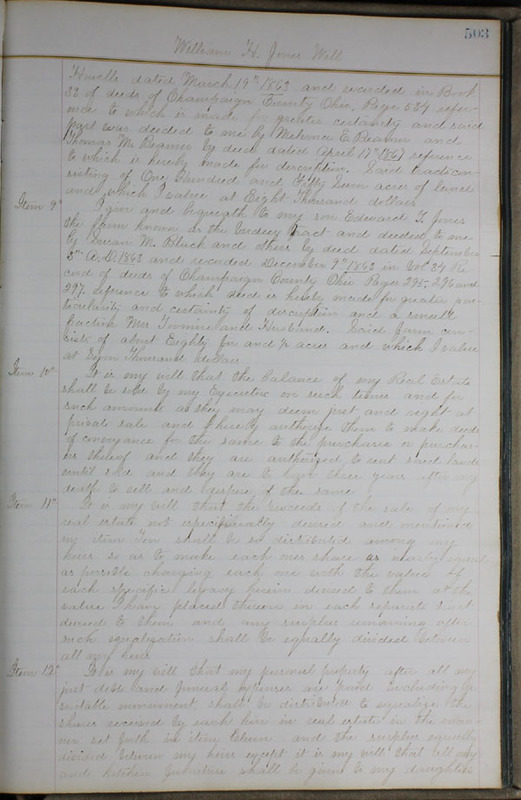 503
William H. Jones Will
dated March 19th 1863 and recorded in Book
32 of deeds of Champaign County Ohio, Page 534 refer-
ence to which is made for greater certainty and said
part was deeded to me by E. Reamer and
Thomas M. Reamer by deed dated April reference
to which is hereby made for description. Said tract con-
sisting of One Hundred and Fifty Seven acres of land
and which I value at Eight Thousand dollars
Item 9th I give and bequeath to my son Edward T. Jones
the farm known as the tract and deeded to me
by Susan M. and others by deed dated September
A.D. 1863 and recorded December 9th 1863 in Vol 34 Re-
cord of deeds of Champaign County Ohio Pages 295, 296 and
297. reference to which deed is hereby made for greater par-
ticularity and certainty of description and a small
fraction and Husband. Said farm con-
sists of about Eighty and ½ acres and which I value
at Thousand dollars
Item 10th It is my will that the balance of my Real Estate
shall be sold by my Executors on such terms and for
such amounts as they may deem just and right at
private sale and I hereby authorize them to make deeds
of conveyance for the same to the purchaser or purchas-
ers thereof and they are authorized to rent said lands
until sold and they are to have three years after my
death to sell and dispose of the same
Item 11th It is my will that the proceeds of the sale of my
real estate not specifically devised and mentioned
in item Ten shall be so distributed among my
heirs so as to make each ones share as nearly equal
as possible charging each one with the value of
each specific legacy herein devised to them at the
value I have placed thereon in each separate tract
devised to them and any surplus remaining after
such equalization shall be equally divided between
all my heirs
Item 12th It is my will that my personal property after all my
just debts and funeral expenses are paid including a
suitable monument shall be distributed to equalize the
shares received by each heir in real estate in the man-
ner set forth in item Eleven and the surplus equally
divided between my heirs except it is my will that all my
and kitchen furniture shall be given to my daughters